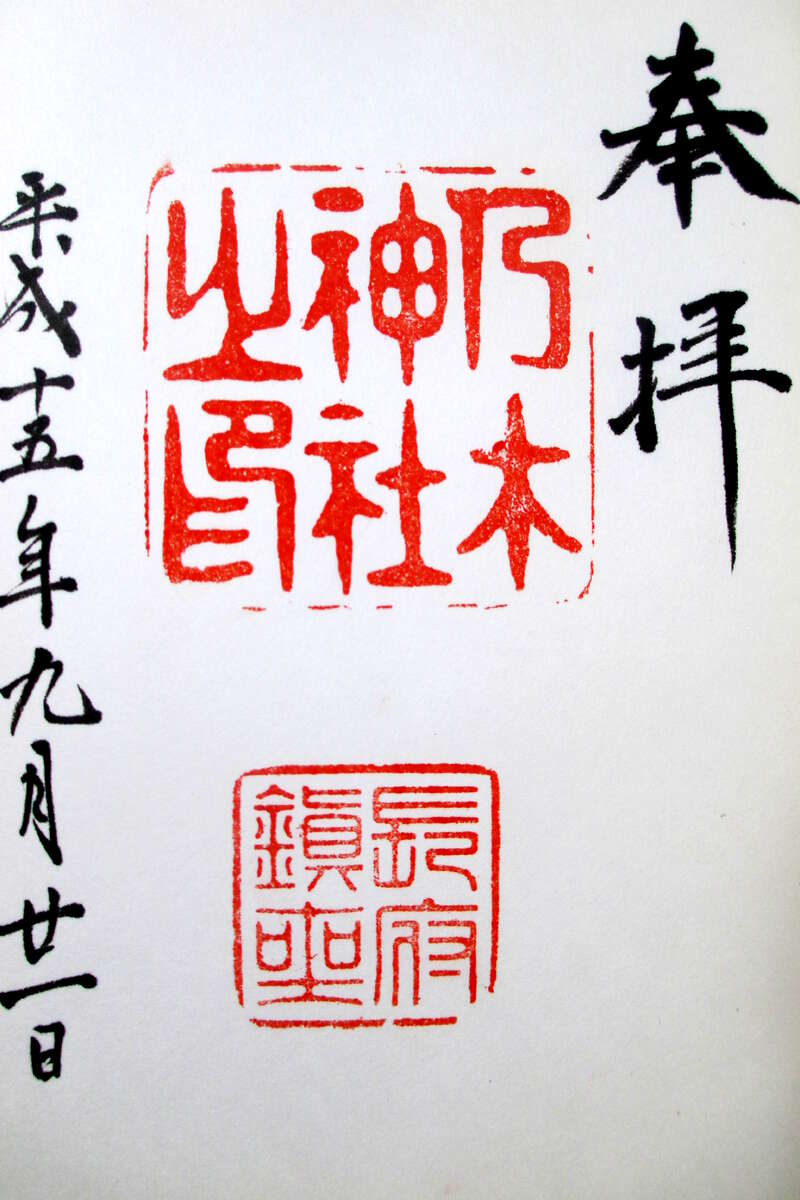 奉拝
乃木
神社
之印
長府
鎮座
平成十五年九月廿一日